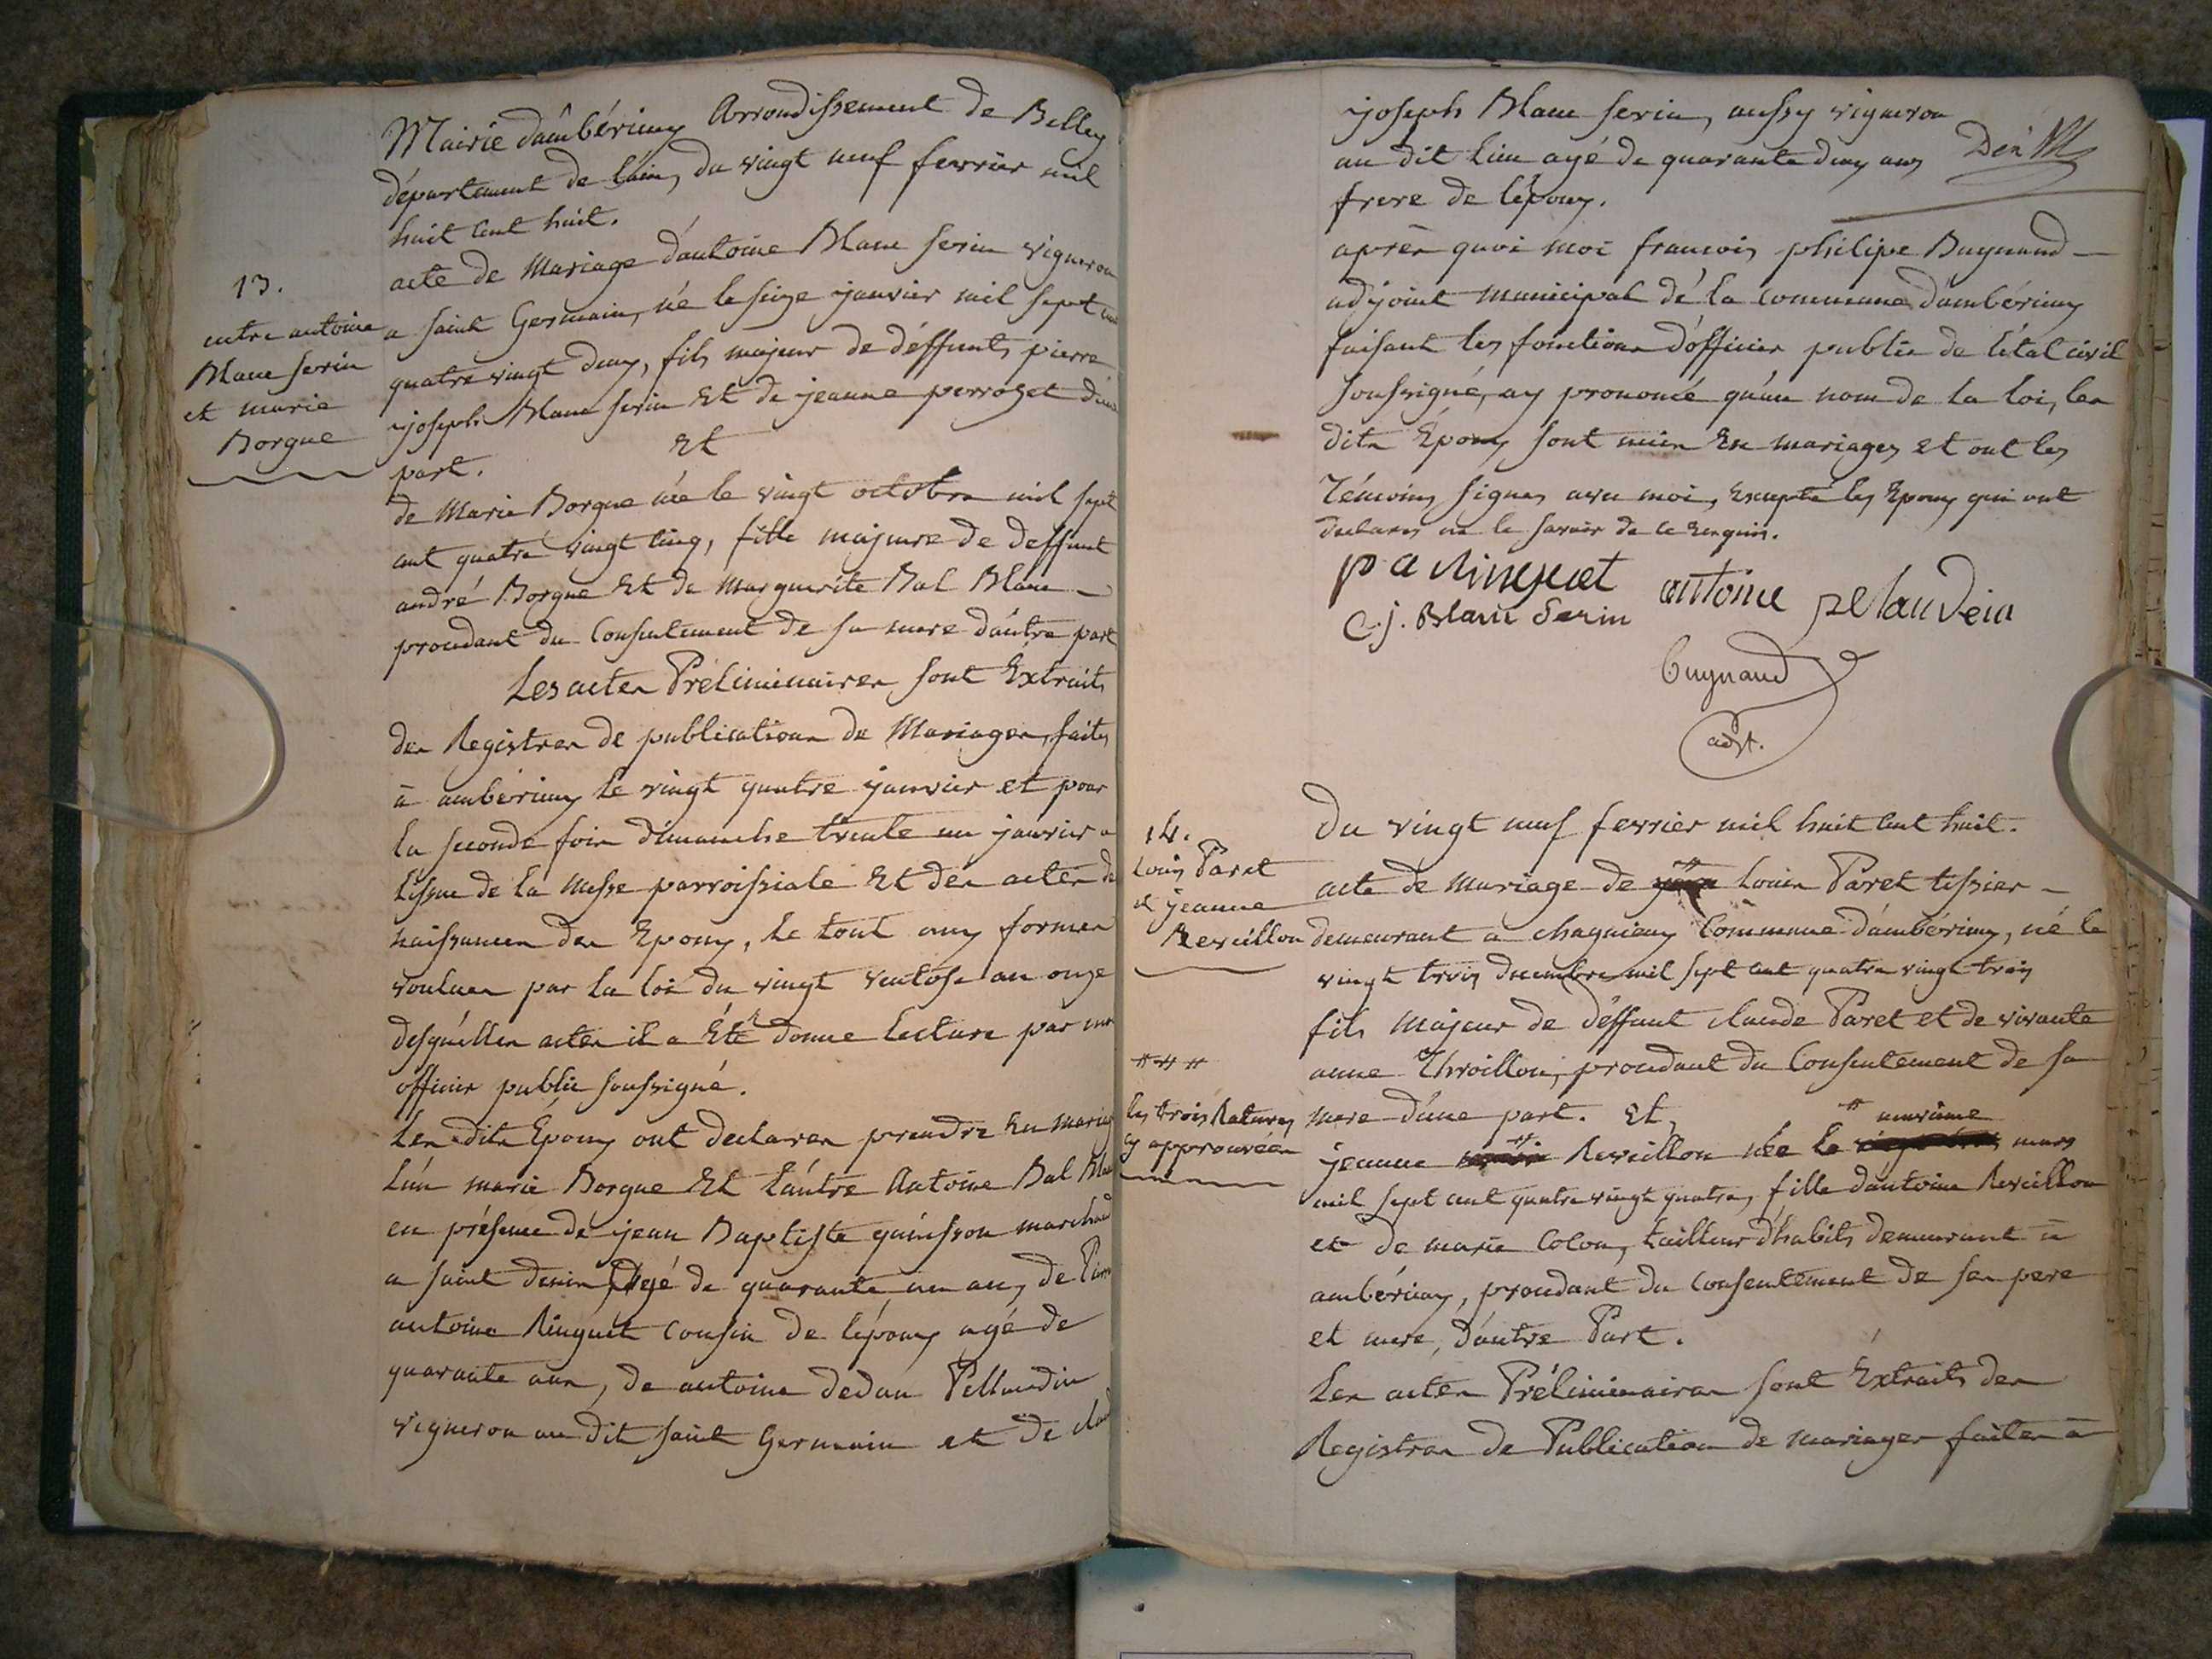 Mairie d'ambérieux Arrondissement de Belley
département de l'ain, du vingt neuf fevrier mil
huit cent huit.
13.
entre antoine
Blanc serin
et marie
Borgue
acte de Mariage d'antoine Blanc serin vigneron
a saint Germain, né le seize janvier mil sept cent
quatre vingt deux, fils majeur de déffunts pierre
joseph Blanc serin Et de jeanne perrozet d'une
part. Et
de Marie Borgue née le vingt octobre mil sept
cent quatre vingt cinq, fille majeure de deffunt
andré Borgue Et de Marguerite Bal Blanc
procedant du Consentement de sa mere d'autre part
Les actes Préliminaires sont Extraits
des Registres de publications de Mariages, faites
à ambérieux le vingt quatre janvier et pour
la seconde fois dimanche trente un janvier a
l'issue de la Messe parroissiale Et des actes de
naissances des Epoux, le tout aux formes
voulues par la loi du vingt ventose an onze
desquelles actes il a été donné lecture par moi
officier public soussigné.
Les dits Epoux ont declarer prendre En mariage
L'un marie Borgue Et L'autre Antoine Bal Blanc
en présence de jean Baptiste guinisson marchand
a saint denis, agé de quarante un ans, de Pierre
antoine Ringuet cousin de l'époux agé de
quarante ans, de antoine dedou Pellaudin
vigneron au dit saint Germain et de claude
joseph Blanc serin, aussy vigneron
au dit lieu agé de quarante deux ans
frere de l'époux.
après quoi moi francois philipe Buynand
adjoint municipal dé la commune d'ambérieux
faisant les fonctions d'officier public de l'état civil
soussigné, ay prononcé qu'au nom de la loi, les
dits Époux sont unis En mariages et ont les
Témoins signes avec moi, Excepté les Epoux qui ont
declarés ne le savoir de ce Enquis.
p a Ringuet antoine pelaudein
C. j. Blanc Serin
Buynand
adjt.
14.
Louis Paret
et jeanne
Reveillon
Du vingt neuf fevrier mil huit cent huit.
acte de mariage de Louis Paret tissier
demeurant a chagnieux Commune d'ambérieux, né le
vingt trois decembre mil sept cent quatre vingt trois
fils Majeur de déffunt claude Paret et de vivante
anne Throillon, procedant du Consentement de sa
mere d'une part. Et,
les trois Ratures
cy approuvées
jeanne Reveillon née le onzieme mars
mil sept cent quatre vingt quatre, fille d'antoine Reveillon
et de marie Colon, tailleur d'habits demeurant à
ambérieux, procedant du Consentement de ses pere
et mere, d'autre Part.
Les actes Préliminaires sont Extraits des
Registres de Publication de mariages faites à